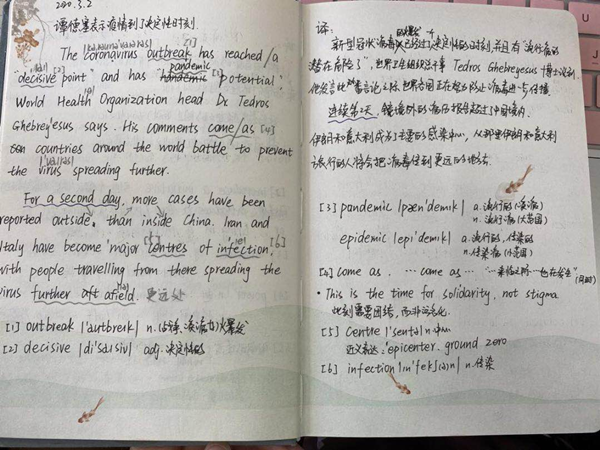 200.3.2
谭德塞表示疫情到了决定性时刻.
The Coronavirus outbreak has reached a
"decisive point" and has "pandemic potential.
World Health Organization head Dr. Tedros
Ghebreyesus says. His comments come as [4]
countries around the world battle to prevent
the virus spreading further.
For a second day, more cases have been
reported outside, than inside China. Iran and
Italy have become major centres of infection, [6]
with people travelling from there spreading the
virus further afield. 更远处
[1] outbreak |'autbreik| n.
[2] decisive |di'saisiv| adj. 决定性的
译:
新型冠状病毒的爆发已经到了决定性的时刻,并且有"流行病的
潜在危险了", 世界卫生组织总干事 Tedros Ghebreyesus 博士说到.
连续第2天, 报告超过了中国境内.
伊朗和意大利成为了主要的感染中心, 从那里伊朗和意大利
旅行的人将会把病毒传到更远的地方.
[3] pandemic |pæn'demik| a. 流行的
n. 流行病 (大范围)
epidemic |epi'demik| a. 流行的, 传染的
n. 传染病 (小范围)
[4] come as. ... come as ...
• This is the time for solidarity, not stigma
此刻需要团结, 而非污名化.
[5] Centre |'sentə| n. 中心
近义表达: epicenter. ground zero
[6] infection |in'fekʃ(ə)n| n. 传染